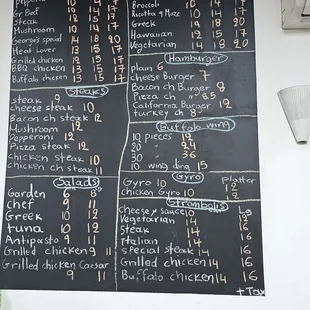 Pepperoni 12 15 17
Gr Beef 12 15 17
Steak 12 15 17
Mushroom 10 14 17
George's special 14 18 20
Meat Lover 13 15 17
Grilled chicken 12 15 17
BBQ chicken 13 15 17
Buffalo chicken 13 15 17
Steaks
steak 9
cheese steak 10
Bacon ch steak 12
Mushroom 12
Pepperoni 12
Pizza steak 12
chicken steak 11
chicken ch steak 11
Salads
Garden 6 8
chef 9 11
Greek 10 12
tuna 10 12
Antipasto 9 11
Grilled chicken 9 11
Grilled chicken Caesar
9 11
Broccoli 10 14 17
Ricotta & Mozz 10 14 17
Greek 14 18 20
Hawaiian 12 15 17
Vegetarian 14 18 20
Hamburger
plain 6
cheese Burger 7
Bacon ch Burger 8
Pizza ch 8.5
California Burger 12
turkey ch 8
Buffalo wing
10 pieces 12
20 24
30 36
10 wing ding 15
Gyro
Gyro 10 platter 12
chicken Gyro 10 12
Strombolis
cheese & sauce 10 Lg 15
Vegetarian 14 16
Steak 14 16
Italian 14 16
special steak 14 16
Grilled chicken 14 16
Buffalo chicken 14 16
+ Tax